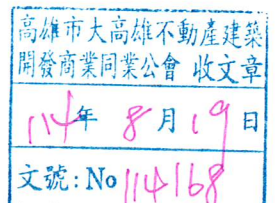 高雄市大高雄不動產建築
開發商業同業公會 收文章
114年 8月19日
文號:No 114168